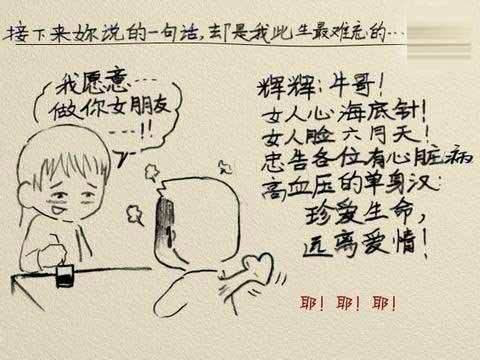 接下来妳说的一句话,却是我此生最难忘的…
我愿意
做你女朋友
……!!
辉辉:牛哥!
女人心海底针!
女人脸六月天!
忠告各位有心脏病
高血压的单身汉:
珍爱生命,
远离爱情!
耶!耶!耶!